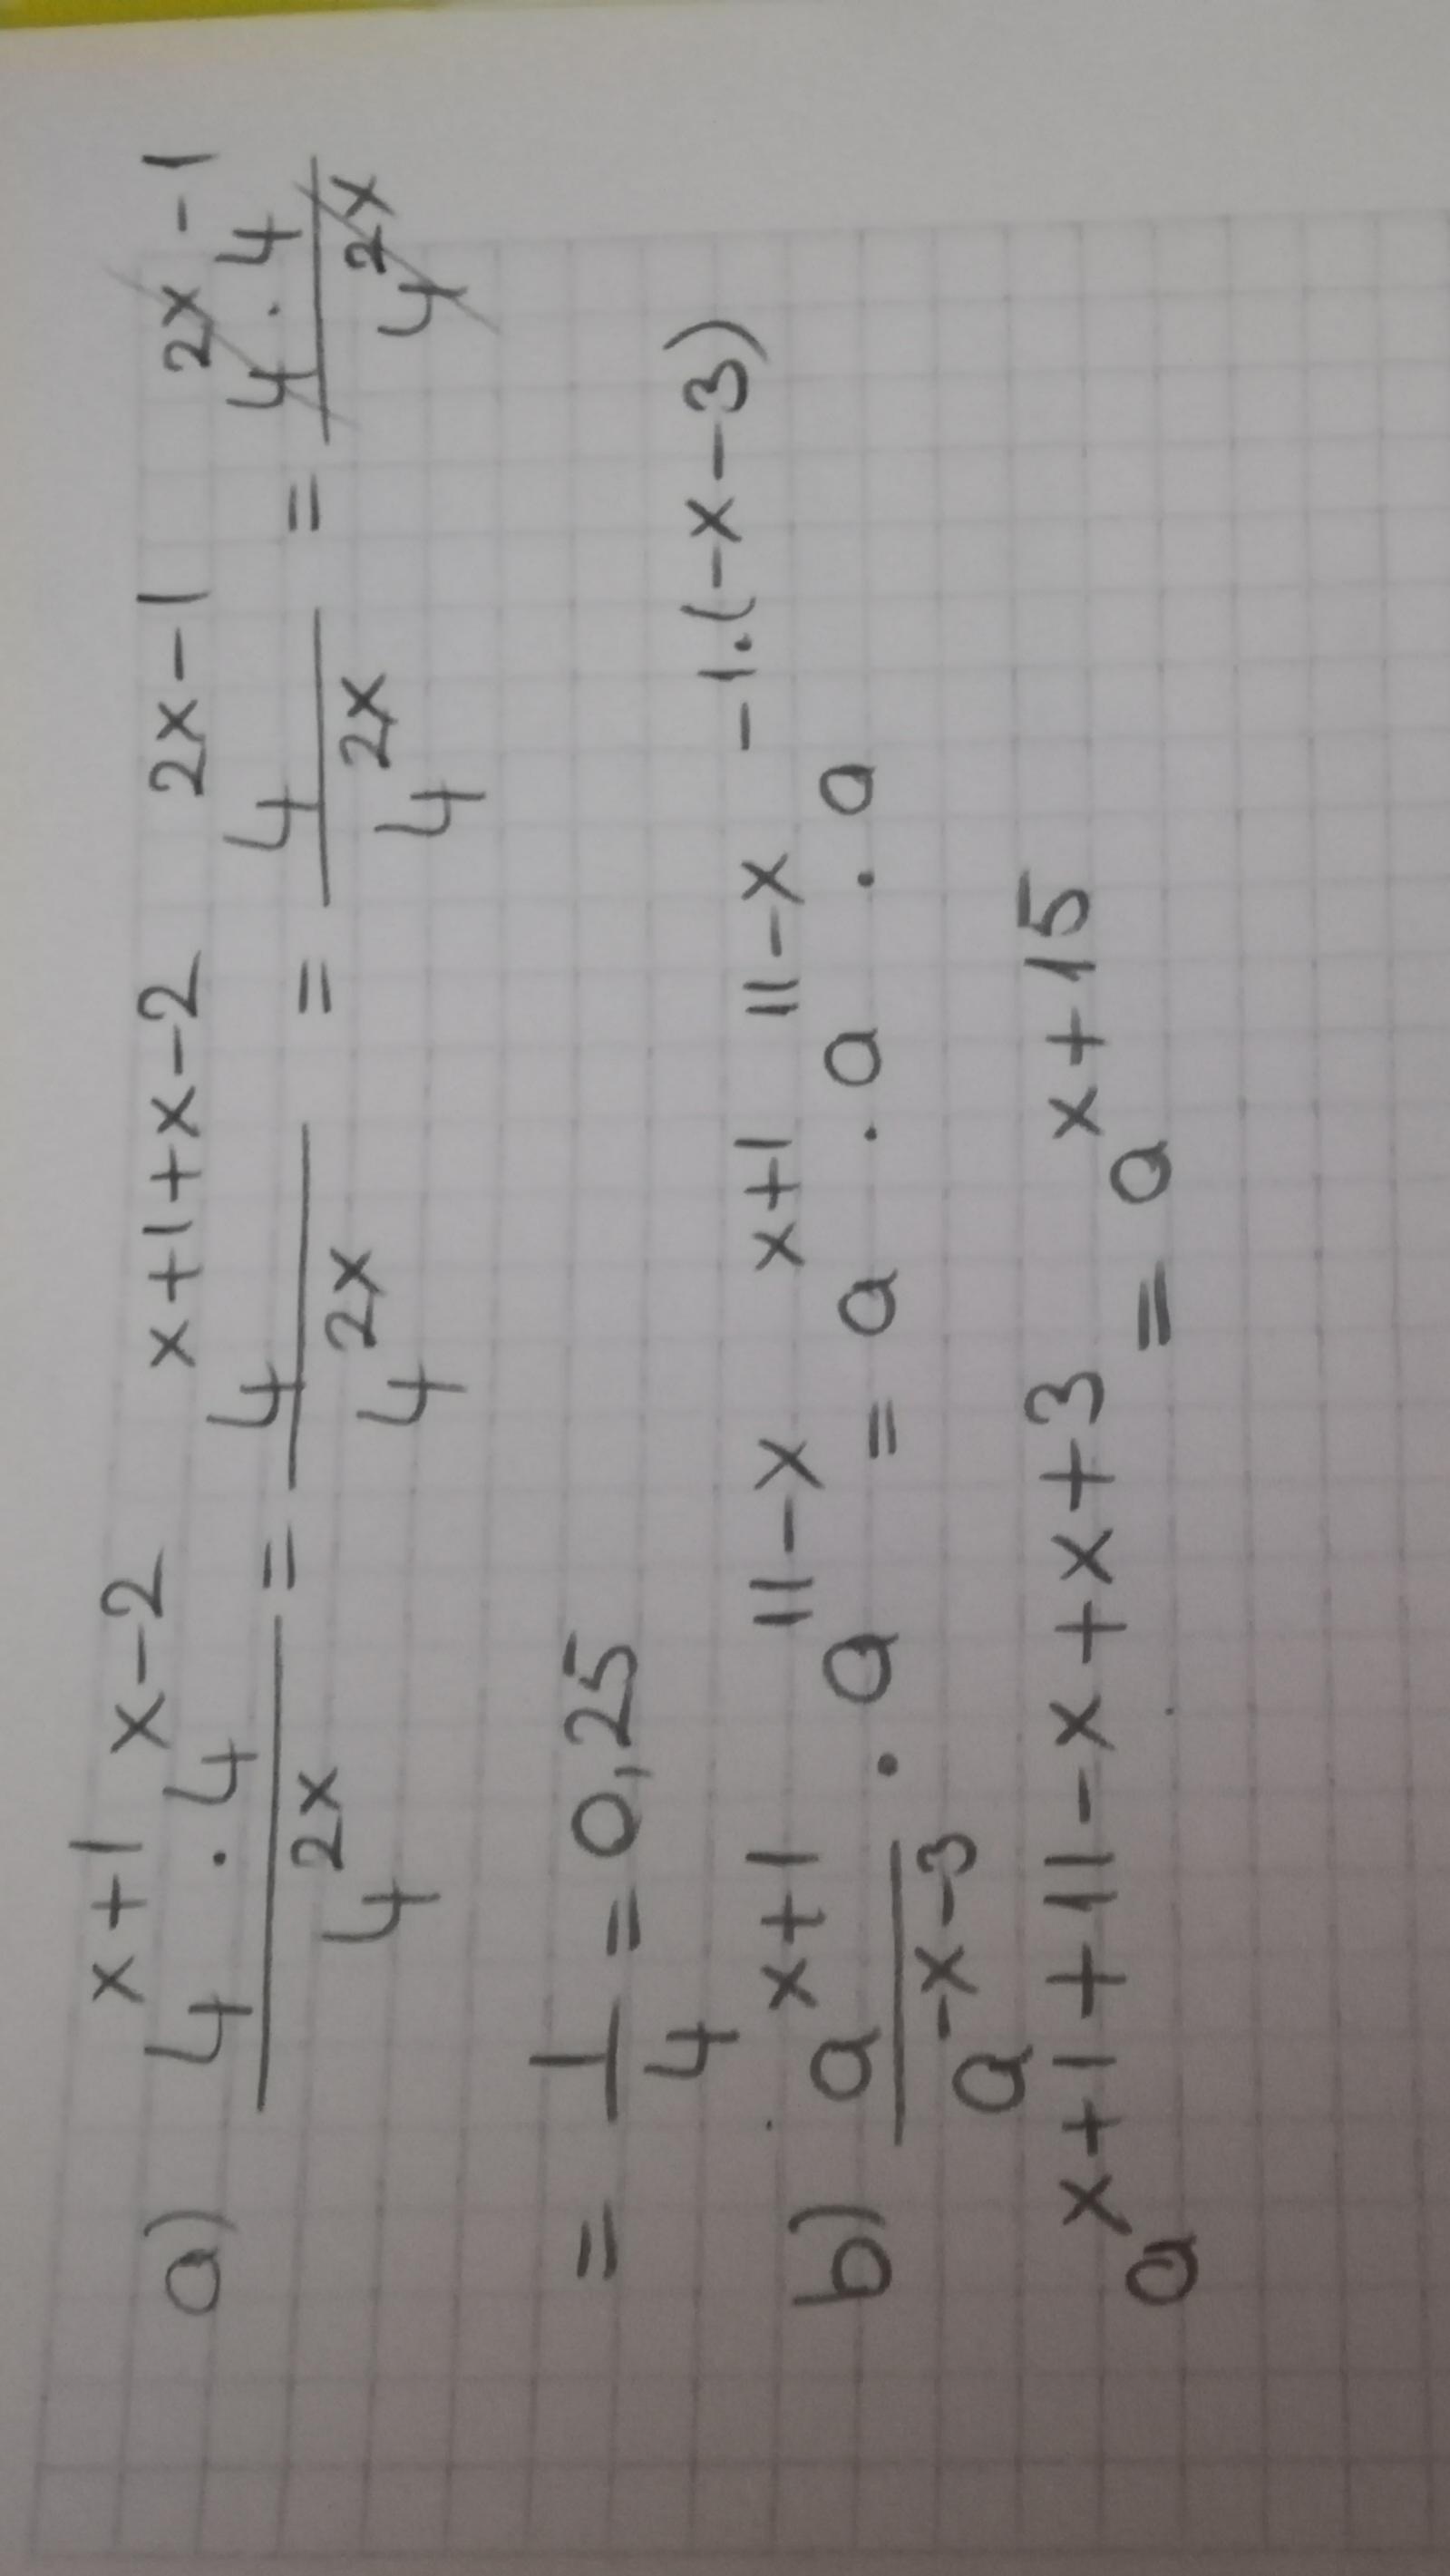 a) 4^(x+1) · 4^(x-2) / 4^(2x) = 4^(x+1+x-2) / 4^(2x) = 4^(2x-1) / 4^(2x) = 4^(2x) · 4^(-1) / 4^(2x)
= 1/4 = 0,25
b) a^(x+1) / a^(-x-3) · a^(11-x) = a^(x+1) · a^(11-x) · a^(-1·(-x-3))
a^(x+1+11-x+x+3) = a^(x+15)